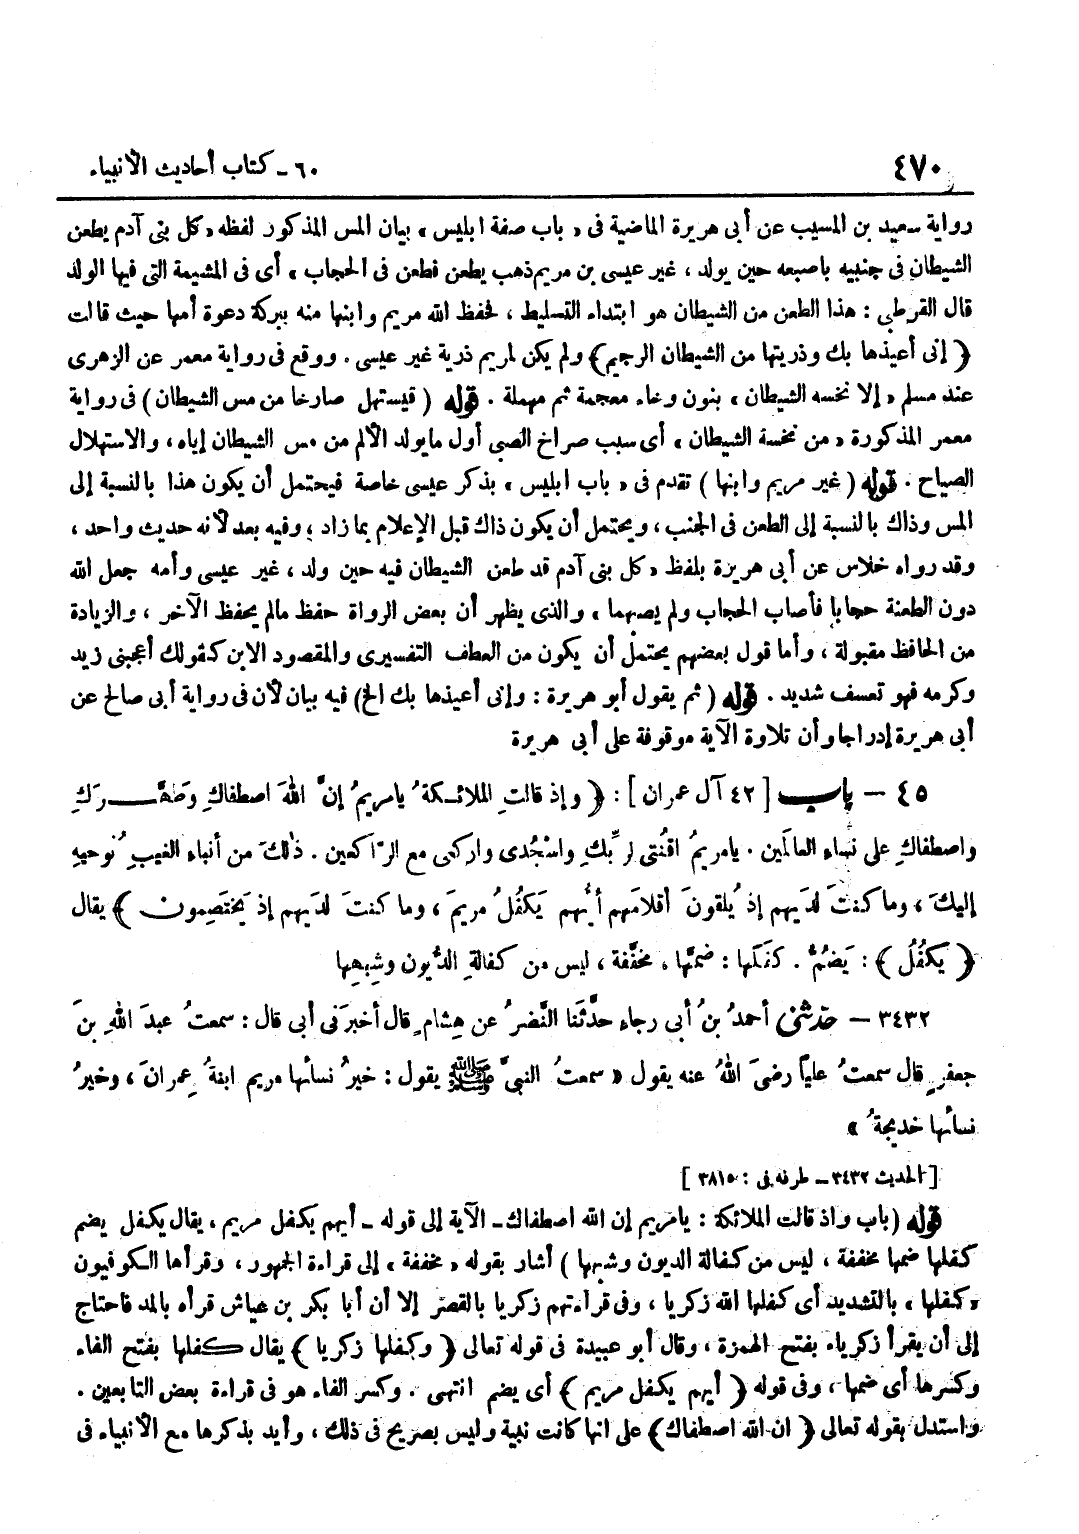 ٤٧٠
٦٠ - كتاب أحاديث الأنبياء
رواية سعيد بن المسيب عن أبى هريرة الماضية فى « باب صفة ابليس » بيان المس المذكور لفظه « كل بنى آدم يطعن
الشيطان فى جنبيه باصبعه حين يولد ، غير عيسى بن مريم ذهب يطعن فطعن فى الحجاب » أى فى المشيمة التى فيها الولد
قال القرطبى : هذا الطعن من الشيطان هو ابتداء التسليط ، فحفظ الله مريم وابنها منه ببركة دعوة أمها حيث قالت
﴿ إنى أعيذها بك وذريتها من الشيطان الرجيم﴾ ولم يكن لمريم ذرية غير عيسى . ووقع فى رواية معمر عن الزهرى
عند مسلم « إلا نخسه الشيطان » بنون وخاء معجمة ثم مهملة . قوله ( فيستهل صارخا من مس الشيطان ) فى رواية
معمر المذكورة « من نخسة الشيطان » أى سبب صراخ الصبى أول ما يولد الألم من مس الشيطان إياه ، والاستهلال
الصياح . قوله ( غير مريم وابنها ) تقدم فى « باب ابليس » بذكر عيسى خاصة فيحتمل أن يكون هذا بالنسبة إلى
المس وذاك بالنسبة إلى الطعن فى الجنب ، ويحتمل أن يكون ذاك قبل الإعلام بما زاد ، وفيه بعد لأنه حديث واحد ،
وقد رواه خلاس عن أبى هريرة بلفظ « كل بنى آدم قد طعن الشيطان فيه حين ولد ، غير عيسى وأمه جعل الله
دون الطعنة حجابا فأصاب الحجاب ولم يصبهما » والذى يظهر أن بعض الرواة حفظ مالم يحفظ الآخر ، والزيادة
من الحافظ مقبولة ، وأما قول بعضهم يحتمل أن يكون من العطف التفسيرى والمقصود الابن كقولك أعجبنى زيد
وكرمه فهو تعسف شديد . قوله ( ثم يقول أبو هريرة : وإنى أعيذها بك الخ) فيه بيان لأن فى رواية أبى صالح عن
أبى هريرة إدراجا وأن تلاوة الآية موقوفة على أبى هريرة
٤٥ - باب [ ٤٢ آل عمران ] : ﴿ وإذ قالتِ الملائكةُ يا مريمُ إنَّ اللهَ اصطفاكِ وطهَّـــركِ
واصطفاكِ على نساءِ العالَمين . يا مريمُ اقنُتى لربِّكِ واسْجُدى واركعى مع الرّاكعين . ذلكَ من أنباء الغيبِ نُوحيهِ
إليكَ ، وما كنتَ لدَيهم إذ يُلقونَ أقلامَهم أيُّهم يَكفُلُ مريمَ ، وما كنتَ لديهم إذ يَختَصِمون ﴾ يقال
﴿ يَكفُلُ ﴾ : يَضُمُّ . كفَلَها : ضمَّها ، مخفَّفة ، ليس من كفالةِ الدُّيون وشِبهِها
٣٤٣٢ - حدثنى أحمدُ بنُ أبى رجاءٍ حدَّثَنا النَّضرُ عن هِشامٍ قال أخبرَنى أبى قال : سمعتُ عبدَ اللهِ بنَ
جعفرٍ قال سمعتُ علياً رضىَ اللهُ عنه يقول « سمعتُ النبىَّ ﷺ يقول : خيرُ نسائها مريم ابنةُ عِمرانَ ، وخيرُ
نسائها خديجةُ »
[ الحديث ٣٤٣٢ - طرفه فى : ٣٨١٥ ]
قوله (باب واذ قالت الملائكة : يا مريم إن الله اصطفاك - الآية إلى قوله - أيهم يكفل مريم ، يقال يكفل يضم
كفلها ضمها مخففة ، ليس من كفالة الديون وشبهها ) أشار بقوله « مخففة » إلى قراءة الجمهور ، وقرأها الكوفيون
« كفلها » بالتشديد أى كفلها الله زكريا ، وفى قراءتهم زكريا بالقصر إلا أن أبا بكر بن عياش قرأه بالمد فاحتاج
إلى أن يقرأ زكرياء بفتح الهمزة ، وقال أبو عبيدة فى قوله تعالى ﴿ وكفلها زكريا ﴾ يقال كفلها بفتح الفاء
وكسرها أى ضمها ، وفى قوله ﴿ أيهم يكفل مريم ﴾ أى يضم انتهى . وكسر الفاء هو فى قراءة بعض التابعين .
واستدل بقوله تعالى ﴿ ان الله اصطفاك﴾ على انها كانت نبية وليس بصريح فى ذلك ، وأيد بذكرها مع الأنبياء فى